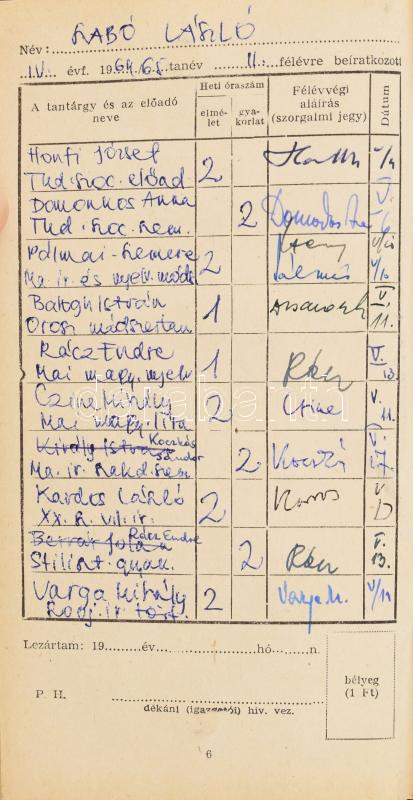 Név: SZABÓ LÁSZLÓ
IV. évf. 1964/65. tanév II. félévre beíratkozott
A tantárgy és az előadó neve
Heti óraszám
elmélet
gyakorlat
Félévvégi aláírás (szorgalmi jegy)
Dátum
Honfi József 2
Tud. szoc. előad
Domonkos Anna 2 V.
Tud. szoc. szem. 6
Pálmai - Szemere 2
Ma. ir. és nyelv. módsz.
Balogh István 1 V.
Orosz módszertan 11.
Rácz Endre 1 Rácz V.
Mai magy. nyelv 13.
Czine Mihály 2 Czine V.
Mai magy. lita 11.
Király István Koczkás Sándor 2 V.
Ma. ir. Rakd. szem 17.
Kardos László 2 Kardos V.
XX. sz. vil. ir. 17
Berrár Jolán Rácz Endre 2 Rácz V.
Stiliszt. gyak. 13.
Varga Mihály 2 Varga M. V/11
ir. tört.
Lezártam: 19 év hó n.
P. H.
dékáni (igazgatói) hiv. vez.
bélyeg
(1 Ft)
6
darabanth